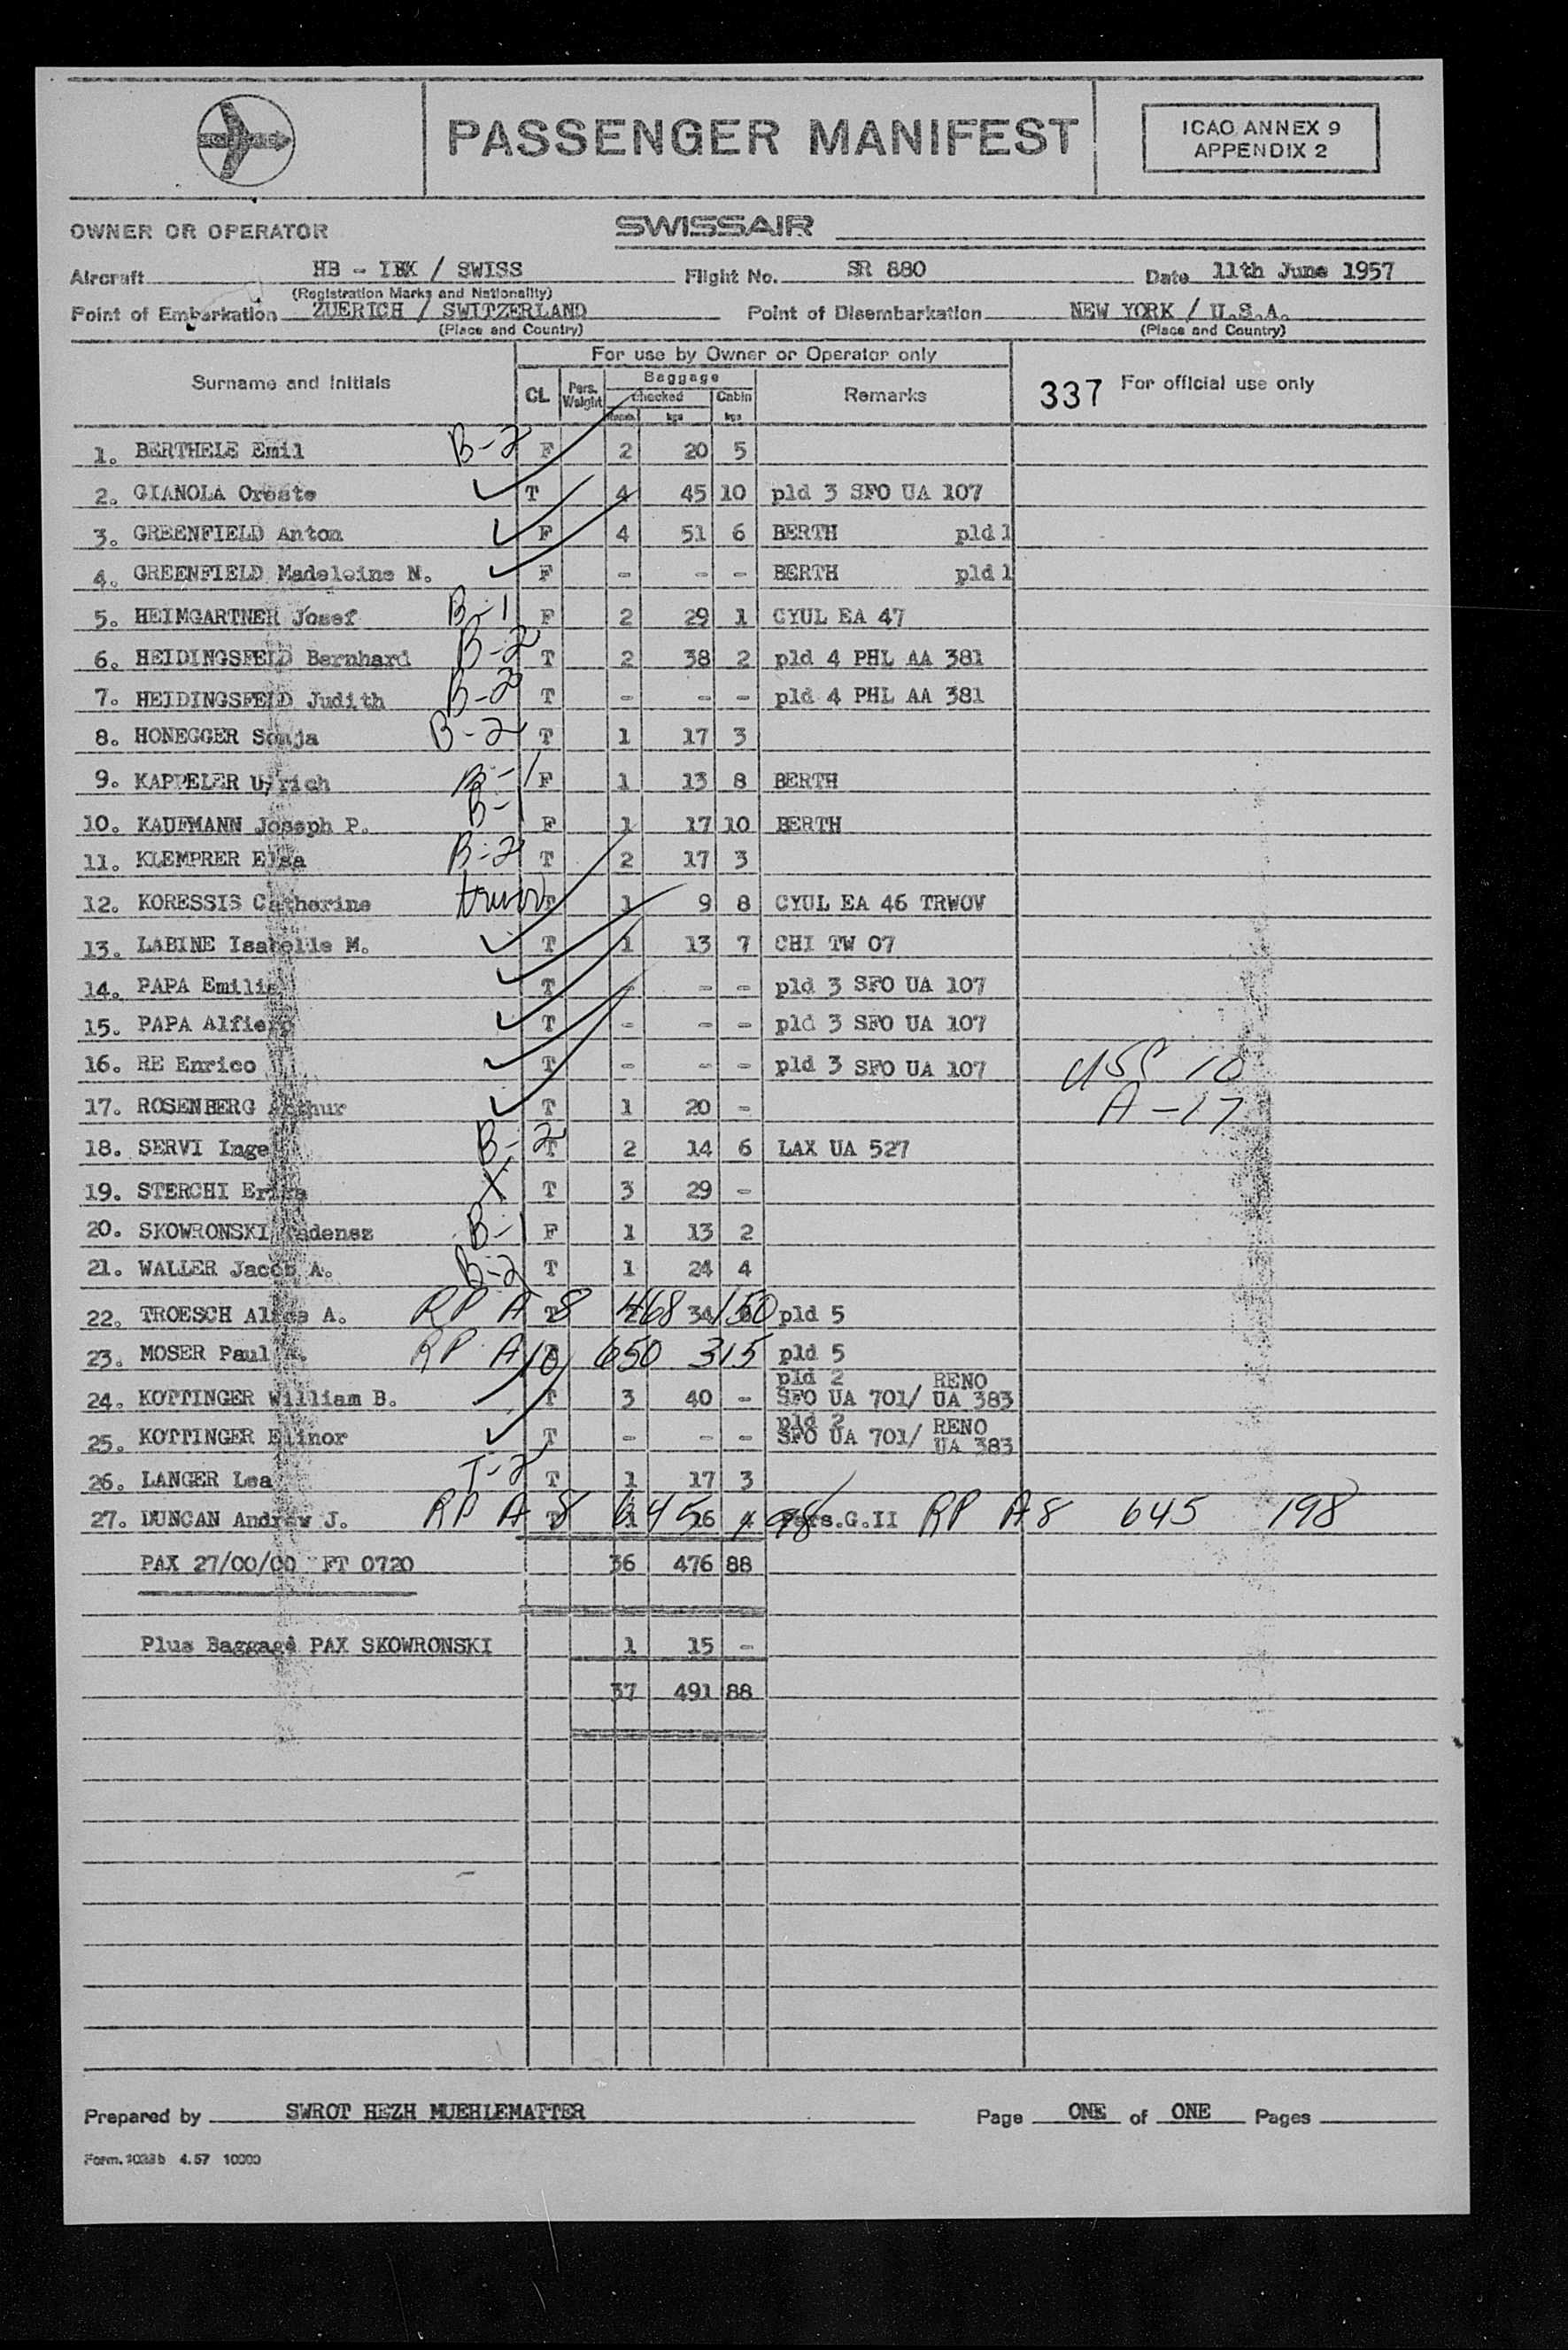 PASSENGER MANIFEST
ICAO ANNEX 9
APPENDIX 2
OWNER OR OPERATOR SWISSAIR
Aircraft HB - IBK / SWISS Flight No. SR 880 Date 11th June 1957
(Registration Marks and Nationality)
Point of Embarkation ZUERICH / SWITZERLAND Point of Disembarkation NEW YORK / U.S.A.
(Place and Country) (Place and Country)
For use by Owner or Operator only
Surname and Initials CL. Pers. Weight Baggage Remarks 337 For official use only
checked Cabin
kgs kgs
1. BERTHELE Emil B-2 F 2 20 5
2. GIANOLA Oreste T 4 45 10 pld 3 SFO UA 107
3. GREENFIELD Anton F 4 51 6 BERTH pld 1
4. GREENFIELD Madeleine N. F - - - BERTH pld 1
5. HEIMGARTNER Josef B-1 F 2 29 1 CYUL EA 47
6. HEIDINGSFELD Bernhard B-2 T 2 38 2 pld 4 PHL AA 381
7. HEIDINGSFELD Judith B-2 T - - - pld 4 PHL AA 381
8. HONEGGER Sonja B-2 T 1 17 3
9. KAPPELER Ulrich B-1 F 1 13 8 BERTH
10. KAUFMANN Joseph P. B-1 F 1 17 10 BERTH
11. KLEMPRER Elsa B-2 T 2 17 3
12. KORESSIS Catherine trwov T 1 9 8 CYUL EA 46 TRWOV
13. LABINE Isabelle M. T 1 13 7 CHI TW 07
14. PAPA Emilia T - - - pld 3 SFO UA 107
15. PAPA Alfiero T - - - pld 3 SFO UA 107
16. RE Enrico T - - - pld 3 SFO UA 107 USC 10
17. ROSENBERG Arthur T 1 20 - A-17
18. SERVI Inge B-2 T 2 14 6 LAX UA 527
19. STERCHI Erika X T 3 29 -
20. SKOWRONSKI Tadeusz B-1 F 1 13 2
21. WALLER Jacob A. B-2 T 1 24 4
22. TROESCH A. RP A 8 468 150 T 34 pld 5
23. MOSER Paul RP A10 650 315 pld 5
24. KOTTINGER William B. T 3 40 - pld 2 SFO UA 701/ RENO UA 383
25. KOTTINGER Elinor T - - - pld 2 SFO UA 701/ RENO UA 383
26. LANGER Lea T-2 T 1 17 3
27. DUNCAN Andrew J. RP A 8 645 198 T 1 16 4 Pers.G.II RP A8 645 198
PAX 27/00/00 FT 0720 36 476 88
Plus Baggage PAX SKOWRONSKI 1 15 -
37 491 88
Prepared by SWROT HEZH MUEHLEMATTER Page ONE of ONE Pages
Form. 1023b 4.57 10000